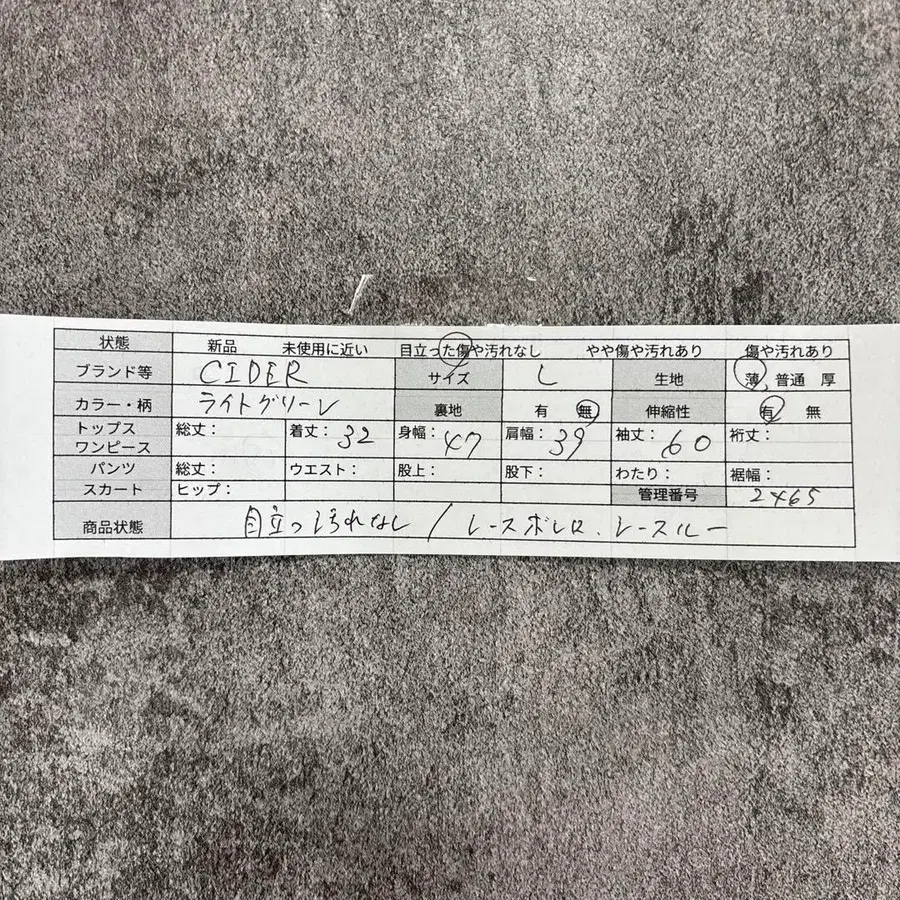 状態 新品 未使用に近い 目立った傷や汚れなし やや傷や汚れあり 傷や汚れあり
ブランド等 CIDER サイズ L 生地 薄 普通 厚
カラー・柄 ライトグリーン 裏地 有 無 伸縮性 有 無
トップス ワンピース 総丈： 着丈：32 身幅：47 肩幅：39 袖丈：60 裄丈：
パンツ 総丈： ウエスト： 股上： 股下： わたり： 裾幅：
スカート ヒップ： 管理番号 2465
商品状態 目立つ汚れなし / レースボレロ、シースルー